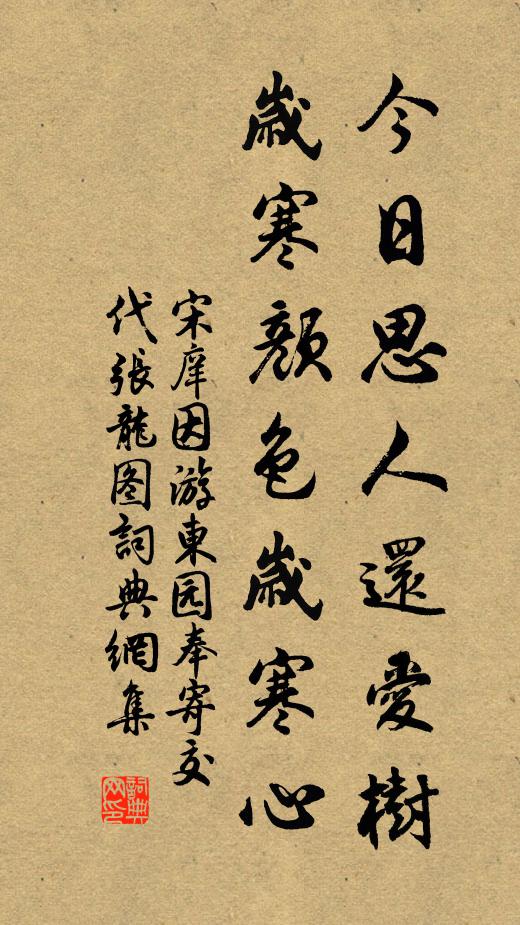 今日思人還愛樹
歲寒顏色歲寒心
宋庠因游東园奉寄交
代張龍图詞典網集
詞典
网印